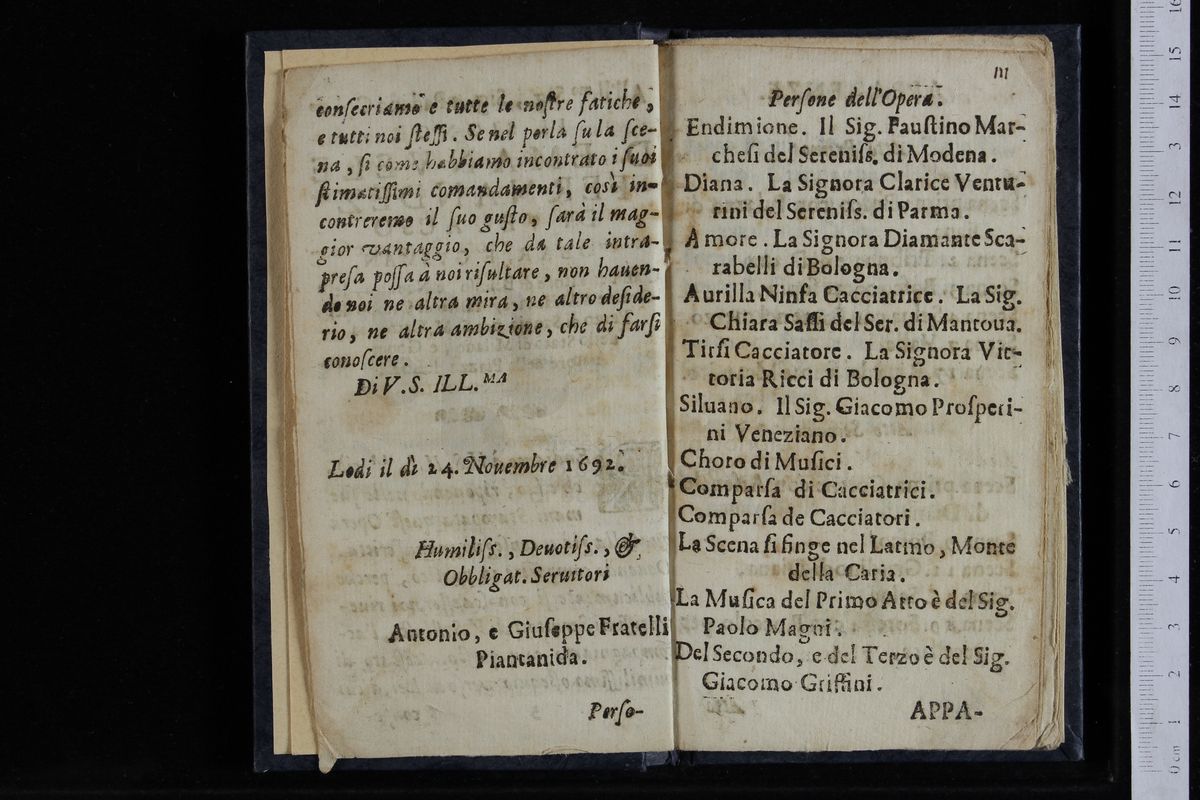 conſecriamo e tutte le noſtre fatiche,
e tutti noi ſteſſi. Se nel porla ſu la ſce-
na, ſi come habbiamo incontrato i ſuoi
ſtimatiſſimi comandamenti, così in-
contreremo il ſuo guſto, ſarà il mag-
gior vantaggio, che da tale intra-
preſa poſſa à noi riſultare, non hauen-
do noi ne altra mira, ne altro deſide-
rio, ne altra ambizione, che di farſi
conoſcere.
Di V.S. ILL.MA
Lodi il dì 24. Nouembre 1692.
Humiliſs., Deuotiſs., &
Obbligat. Seruitori
Antonio, e Giuſeppe Fratelli
Piantanida.
Perſo-
III
Perſone dell'Opera.
Endimione. Il Sig. Fauſtino Mar-
cheſi del Sereniſs. di Modena.
Diana. La Signora Clarice Ventu-
rini del Sereniſs. di Parma.
Amore. La Signora Diamante Sca-
rabelli di Bologna.
Aurilla Ninfa Cacciatrice. La Sig.
Chiara Saſſi del Ser. di Mantoua.
Tirſi Cacciatore. La Signora Vit-
toria Ricci di Bologna.
Siluano. Il Sig. Giacomo Proſperi-
ni Veneziano.
Choro di Muſici.
Comparſa di Cacciatrici.
Comparſa de Cacciatori.
La Scena ſi finge nel Latmo, Monte
della Caria.
La Muſica del Primo Atto è del Sig.
Paolo Magni.
Del Secondo, e del Terzo è del Sig.
Giacomo Griffini.
APPA-
0 cm 1 2 3 4 5 6 7 8 9 10 11 12 13 14 15 16